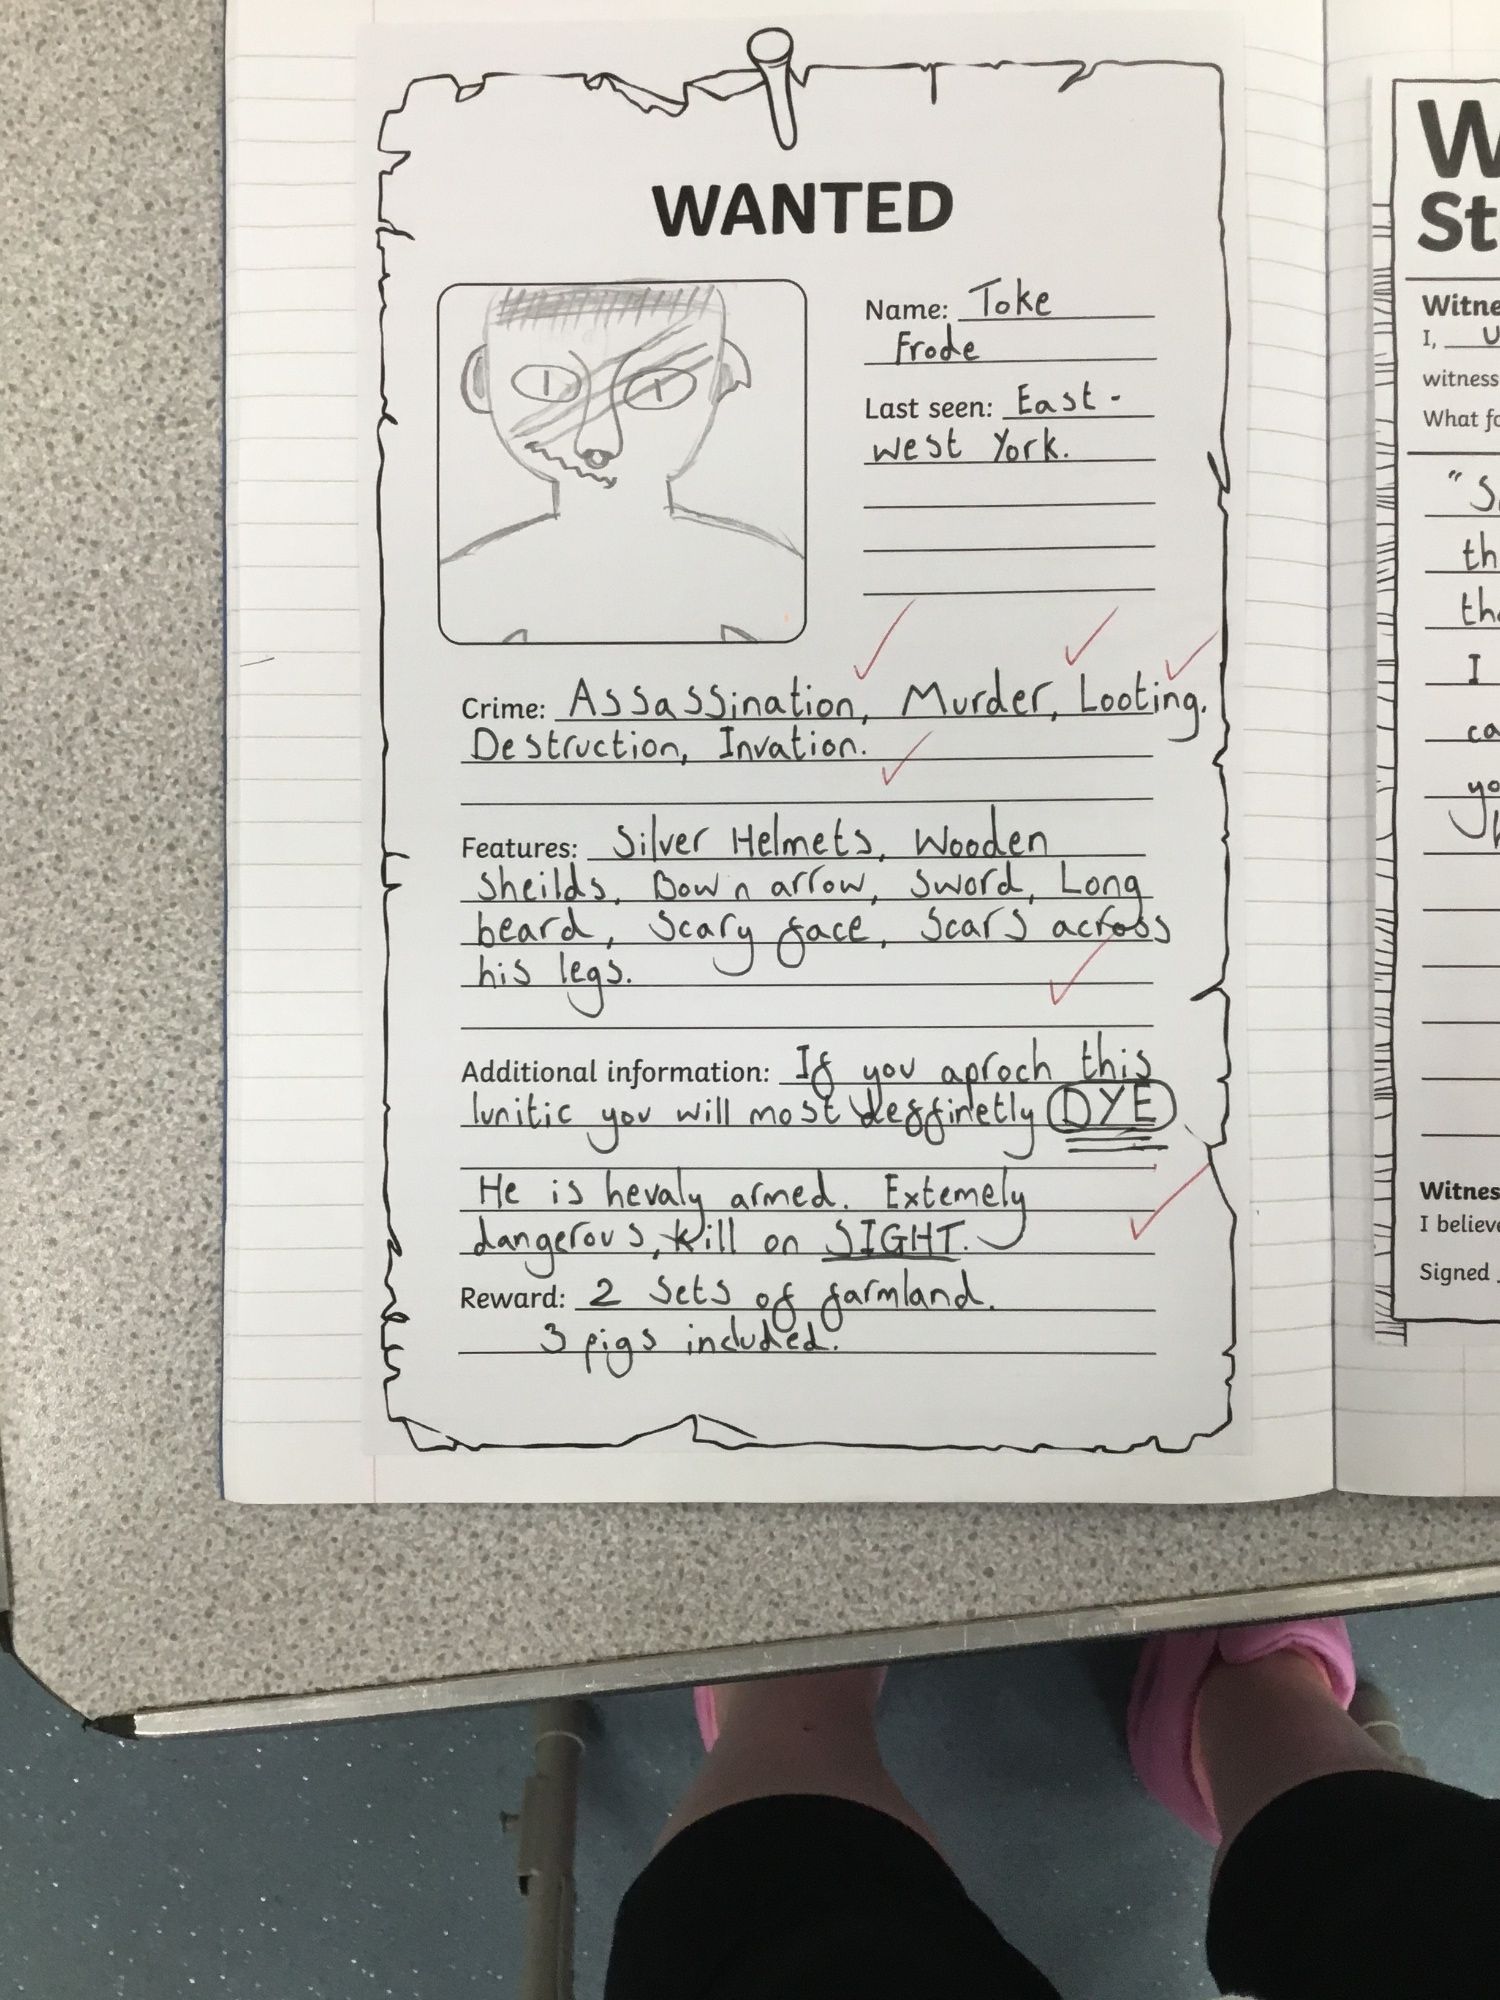 WANTED
Name: Toke
Frode
Last seen: East -
west York.
Crime: Assassination, Murder, Looting.
Destruction, Invation.
Features: Silver Helmets, Wooden
sheilds, Bow n arrow, Sword, Long
beard, Scary face, Scars across
his legs.
Additional information: If you aproch this
lunitic you will most deffinetly DYE
He is hevaly armed. Extemely
dangerous, kill on SIGHT.
Reward: 2 sets of farmland.
3 pigs included.
W
St
Witne
I, u
witness
What fo
"S
th
tha
I
ca
yo
Witnes
I believe
Signed